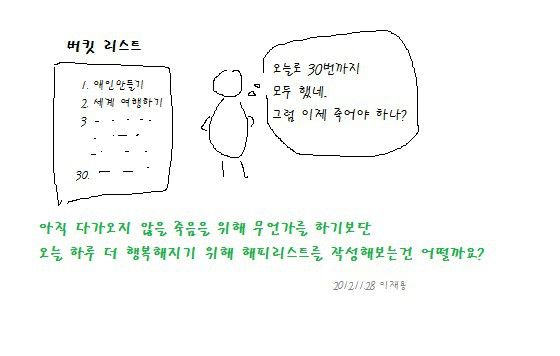 버킷 리스트
1. 애인만들기
2. 세계 여행하기
3
30.
오늘로 30번까지
모두 했네.
그럼 이제 죽어야 하나?
아직 다가오지 않을 죽음을 위해 무언가를 하기보단
오늘 하루 더 행복해지기 위해 해피리스트를 작성해보는건 어떨까요?
2012.11.28 이재용